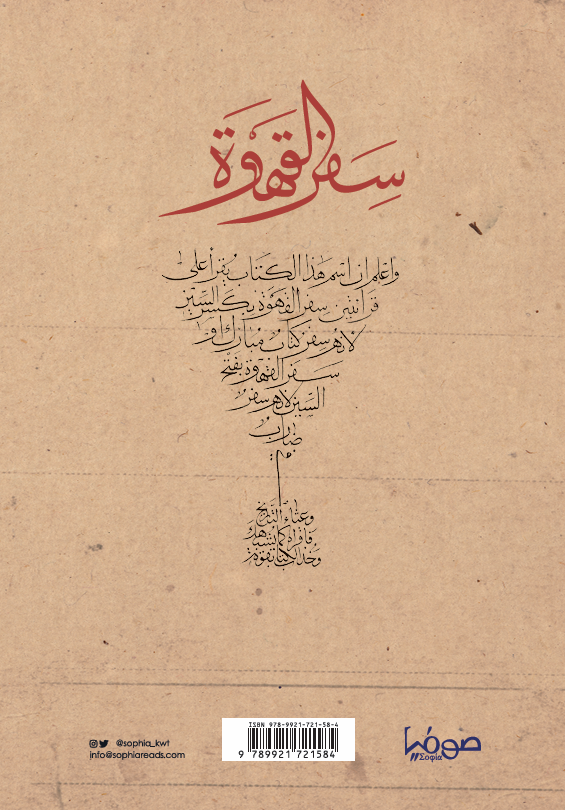 سفر القهوة
واعلم ان اسم هذا الكتاب يقرأ على
قرائتين سفر القهوة بكسر السين
لأنه سفر كتاب مبارك او
سفر القهوة بفتح
السين لأنه سفر
ضارب
في
وعثاء التاريخ
فاقرأه كما تشاء
وخذ الكتاب بقوة
@sophia_kwt
info@sophiareads.com
ISBN 978-9921-721-58-4
9 789921 721584
صوفيا
Σοφία